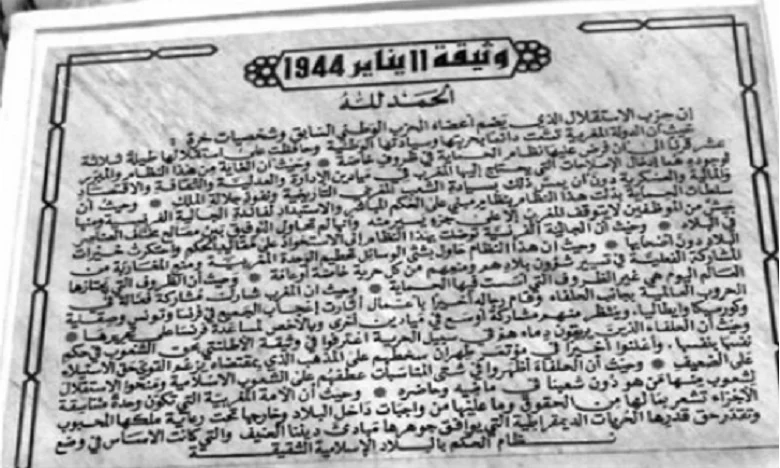 وثيقة 11 يناير 1944
الحمد لله
إن حزب الاستقلال الذي يضم أعضاء الحزب الوطني السابق وشخصيات حرة :
حيث أن الدولة المغربية تمتعت دائما بحريتها وسيادتها الوطنية وحافظت على استقلالها طيلة ثلاثة
عشر قرنا إلى أن فرض عليها نظام الحماية في ظروف خاصة • وحيث أن الغاية من هذا النظام والمبرر
لوجوده هما إدخال الإصلاحات التي يحتاج إليها المغرب في ميادين الإدارة والعدلية والثقافة والاقتصاد
والمالية والعسكرية دون أن يمس ذلك بسيادة الشعب المغربي التاريخية ونفوذ جلالة الملك • وحيث أن
سلطات الحماية بدلت هذا النظام بنظام مبني على الحكم المباشر والاستبداد لفائدة الجالية الفرنسية ومنها
جيش من الموظفين لا يتوقف المغرب إلا على جزء يسير منه وأنها لم تحاول التوفيق بين مصالح مختلف العناصر
في البلاد • وحيث أن الجالية الفرنسية توصلت بهذا النظام إلى الاستحواذ على مقاليد الحكم واحتكرت خيرات
البلاد دون أصحابها • وحيث أن هذا النظام حاول بشتى الوسائل تحطيم الوحدة المغربية ومنع المغاربة من
المشاركة الفعلية في تسيير شؤون بلادهم ومنعهم من كل حرية خاصة أو عامة • وحيث أن الظروف التي يجتازها
العالم اليوم هي غير الظروف التي أسست فيها الحماية • وحيث أن المغرب شارك مشاركة فعالة في
الحروب العالمية بجانب الحلفاء وقام رجاله أخيرا بأعمال أثارت إعجاب الجميع في فرنسا وتونس وصقلية
وكورسيكا وإيطاليا، وينتظر منهم مشاركة أوسع في ميادين أخرى وبالأخص لمساعدة فرنسا على تحريرها •
وحيث أن الحلفاء الذين يريقون دماءهم في سبيل الحرية اعترفوا في وثيقة الأطلنتي بحق الشعوب في حكم
نفسها بنفسها، وأعلنوا أخيرا في مؤتمر طهران سخطهم على المذهب الذي بمقتضاه يزعم القوي حق الاستيلاء
على الضعيف • وحيث أن الحلفاء أظهروا في شتى المناسبات عطفهم على الشعوب الإسلامية ومنحوا الاستقلال
لشعوب منها من هو دون شعبنا في ماضيه وحاضره • وحيث أن الأمة المغربية التي تكون وحدة متناسقة
الأجزاء تشعر بما لها من الحقوق وما عليها من واجبات داخل البلاد وخارجها تحت رعاية ملكها المحبوب
وتقدر حق قدرها الحريات الديمقراطية التي يوافق جوهرها مبادئ ديننا الحنيف والتي كانت الأساس في وضع
نظام الحكم بالبلاد الإسلامية الشقيقة